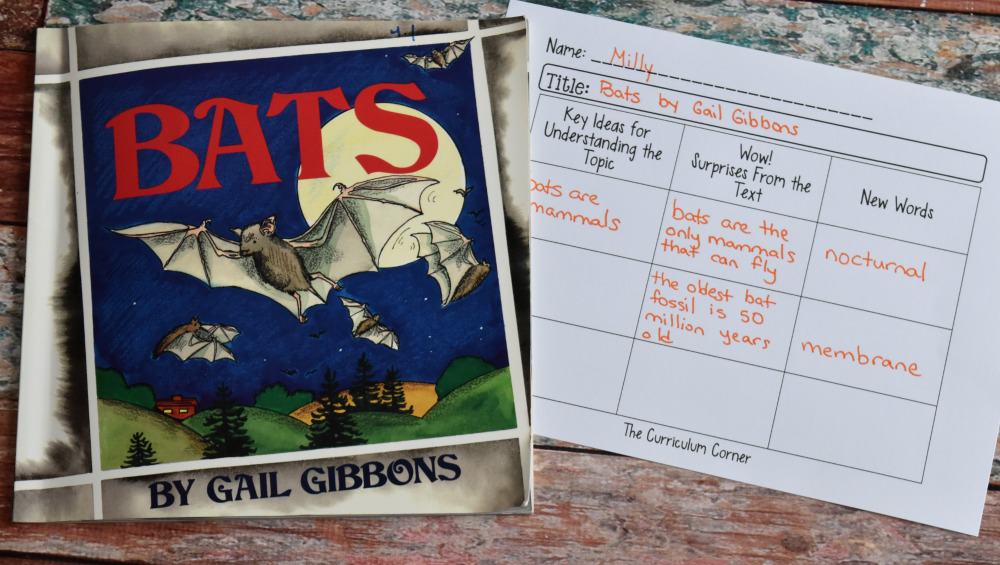 BATS
BY GAIL GIBBONS
Name: Milly
Title: Bats by Gail Gibbons
Key Ideas for
Understanding the
Topic
Wow!
Surprises From the
Text
New Words
bats are
mammals
bats are the
only mammals
that can fly
nocturnal
the oldest bat
fossil is 50
million years
old
membrane
The Curriculum Corner